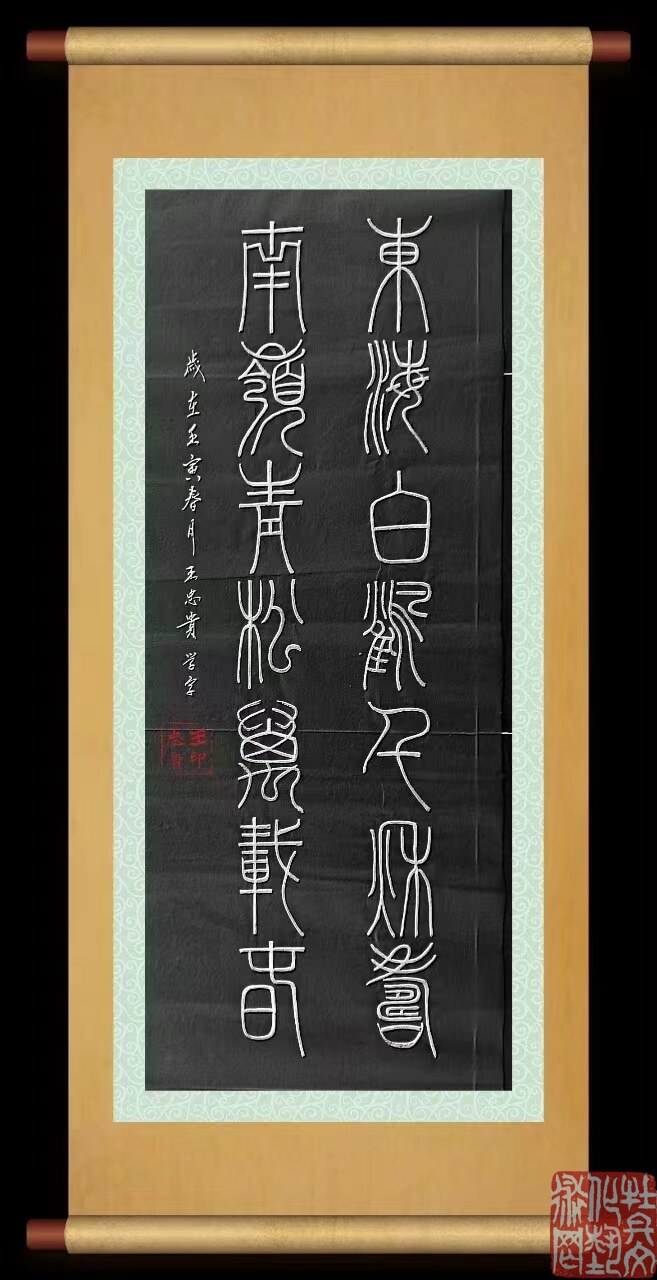 東海白鶴千秋壽
南嶺青松萬載春
歲在壬寅春月王忠貴学字
王印忠貴